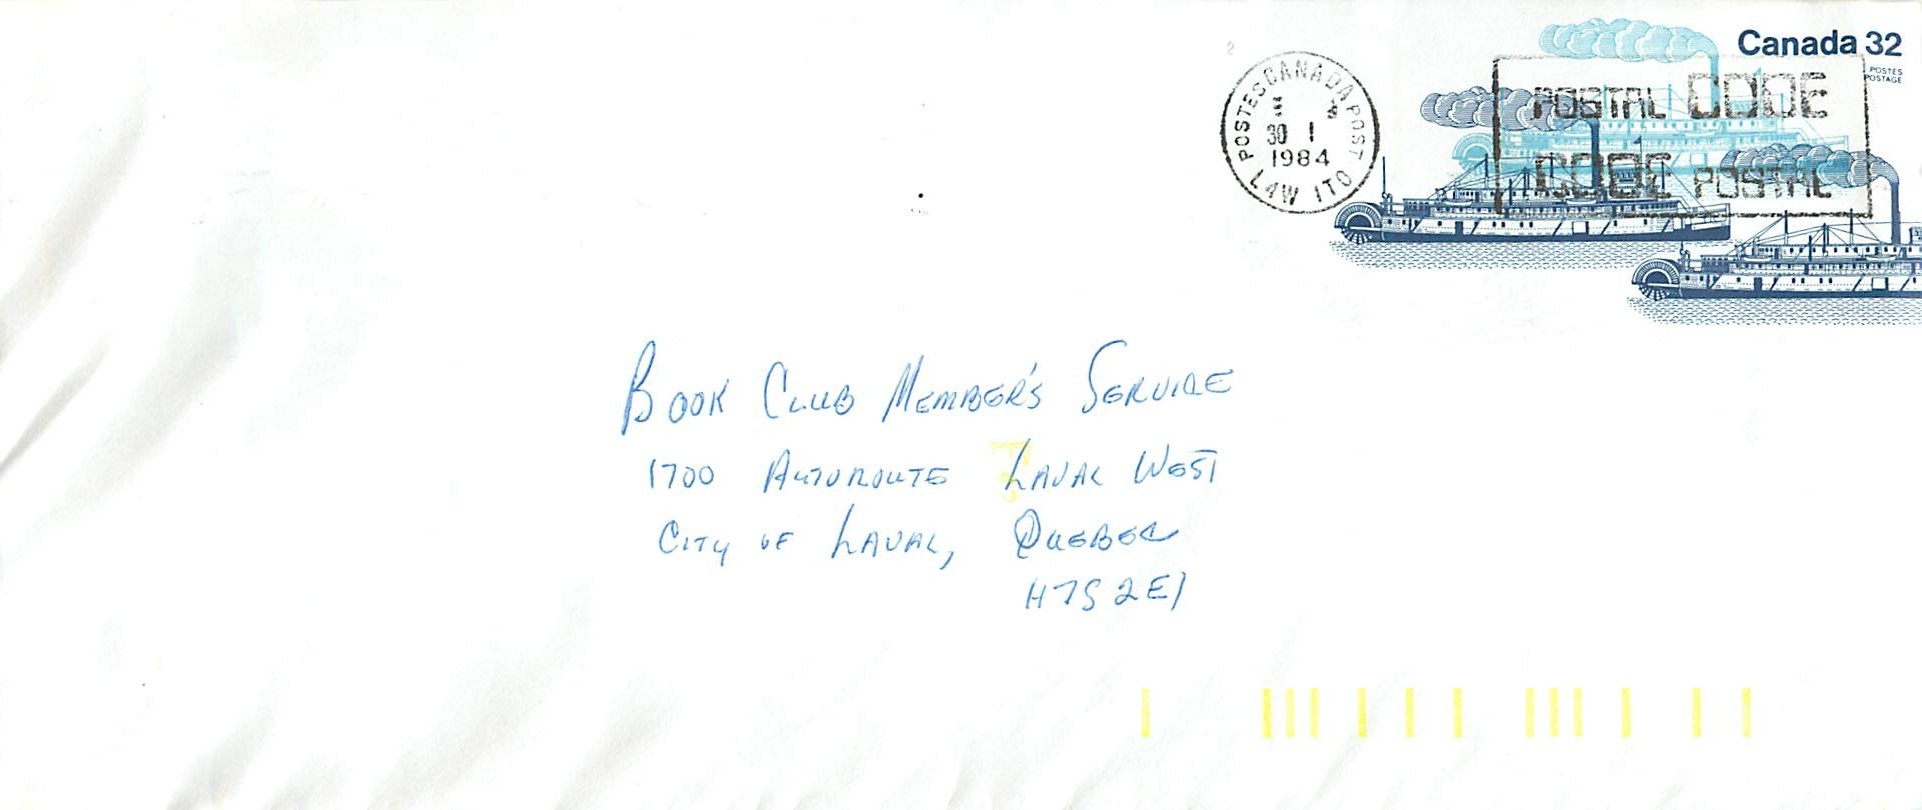 Canada 32
POSTES
POSTAGE
POSTES CANADA POST
30 I
1984
L4W 1T0
POSTAL CODE
CODE POSTAL
BOOK CLUB MEMBER'S SERVICE
1700 AUTOROUTE LAVAL WEST
CITY OF LAVAL, QUEBEC
H7S 2E1